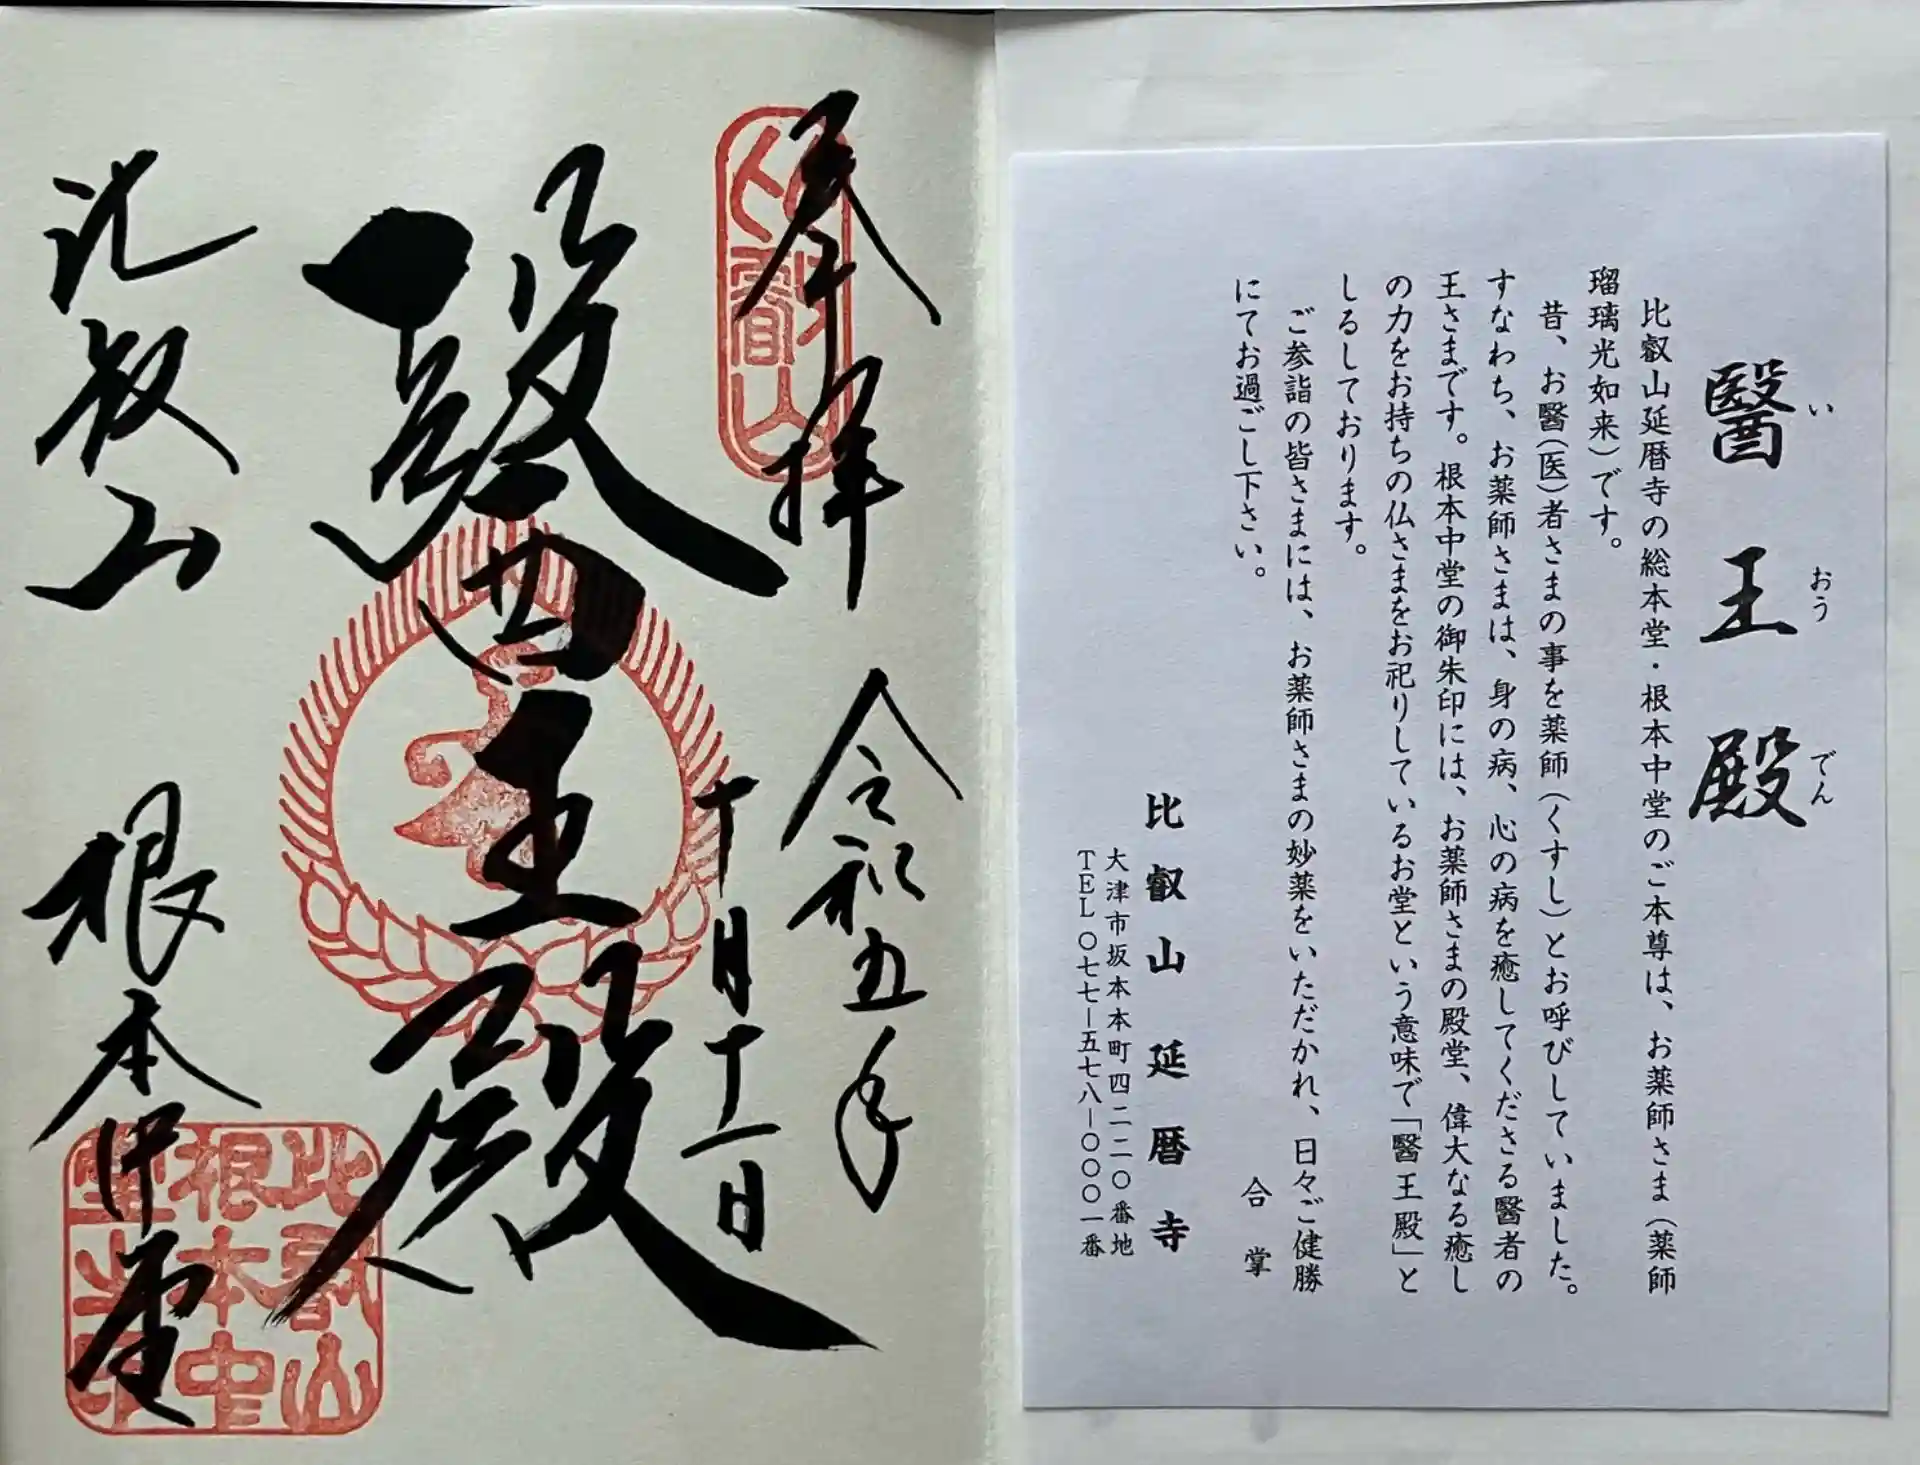 醫王殿
い
おう
でん
比叡山延暦寺の総本堂・根本中堂のご本尊は、お薬師さま（薬師
瑠璃光如来）です。
昔、お醫（医）者さまの事を薬師（くすし）とお呼びしていました。
すなわち、お薬師さまは、身の病、心の病を癒してくださる醫者の
王さまです。根本中堂の御朱印には、お薬師さまの殿堂、偉大なる癒し
の力をお持ちの仏さまをお祀りしているお堂という意味で「醫王殿」と
しるしております。
ご参詣の皆さまには、お薬師さまの妙薬をいただかれ、日々ご健勝
にてお過ごし下さい。
合掌
比叡山延暦寺
大津市坂本本町四二二〇番地
TEL〇七七―五七八―〇〇〇一番
奉拝
令和五年
十月十一日
醫王殿
比叡山
根本中堂
比叡山
根本中